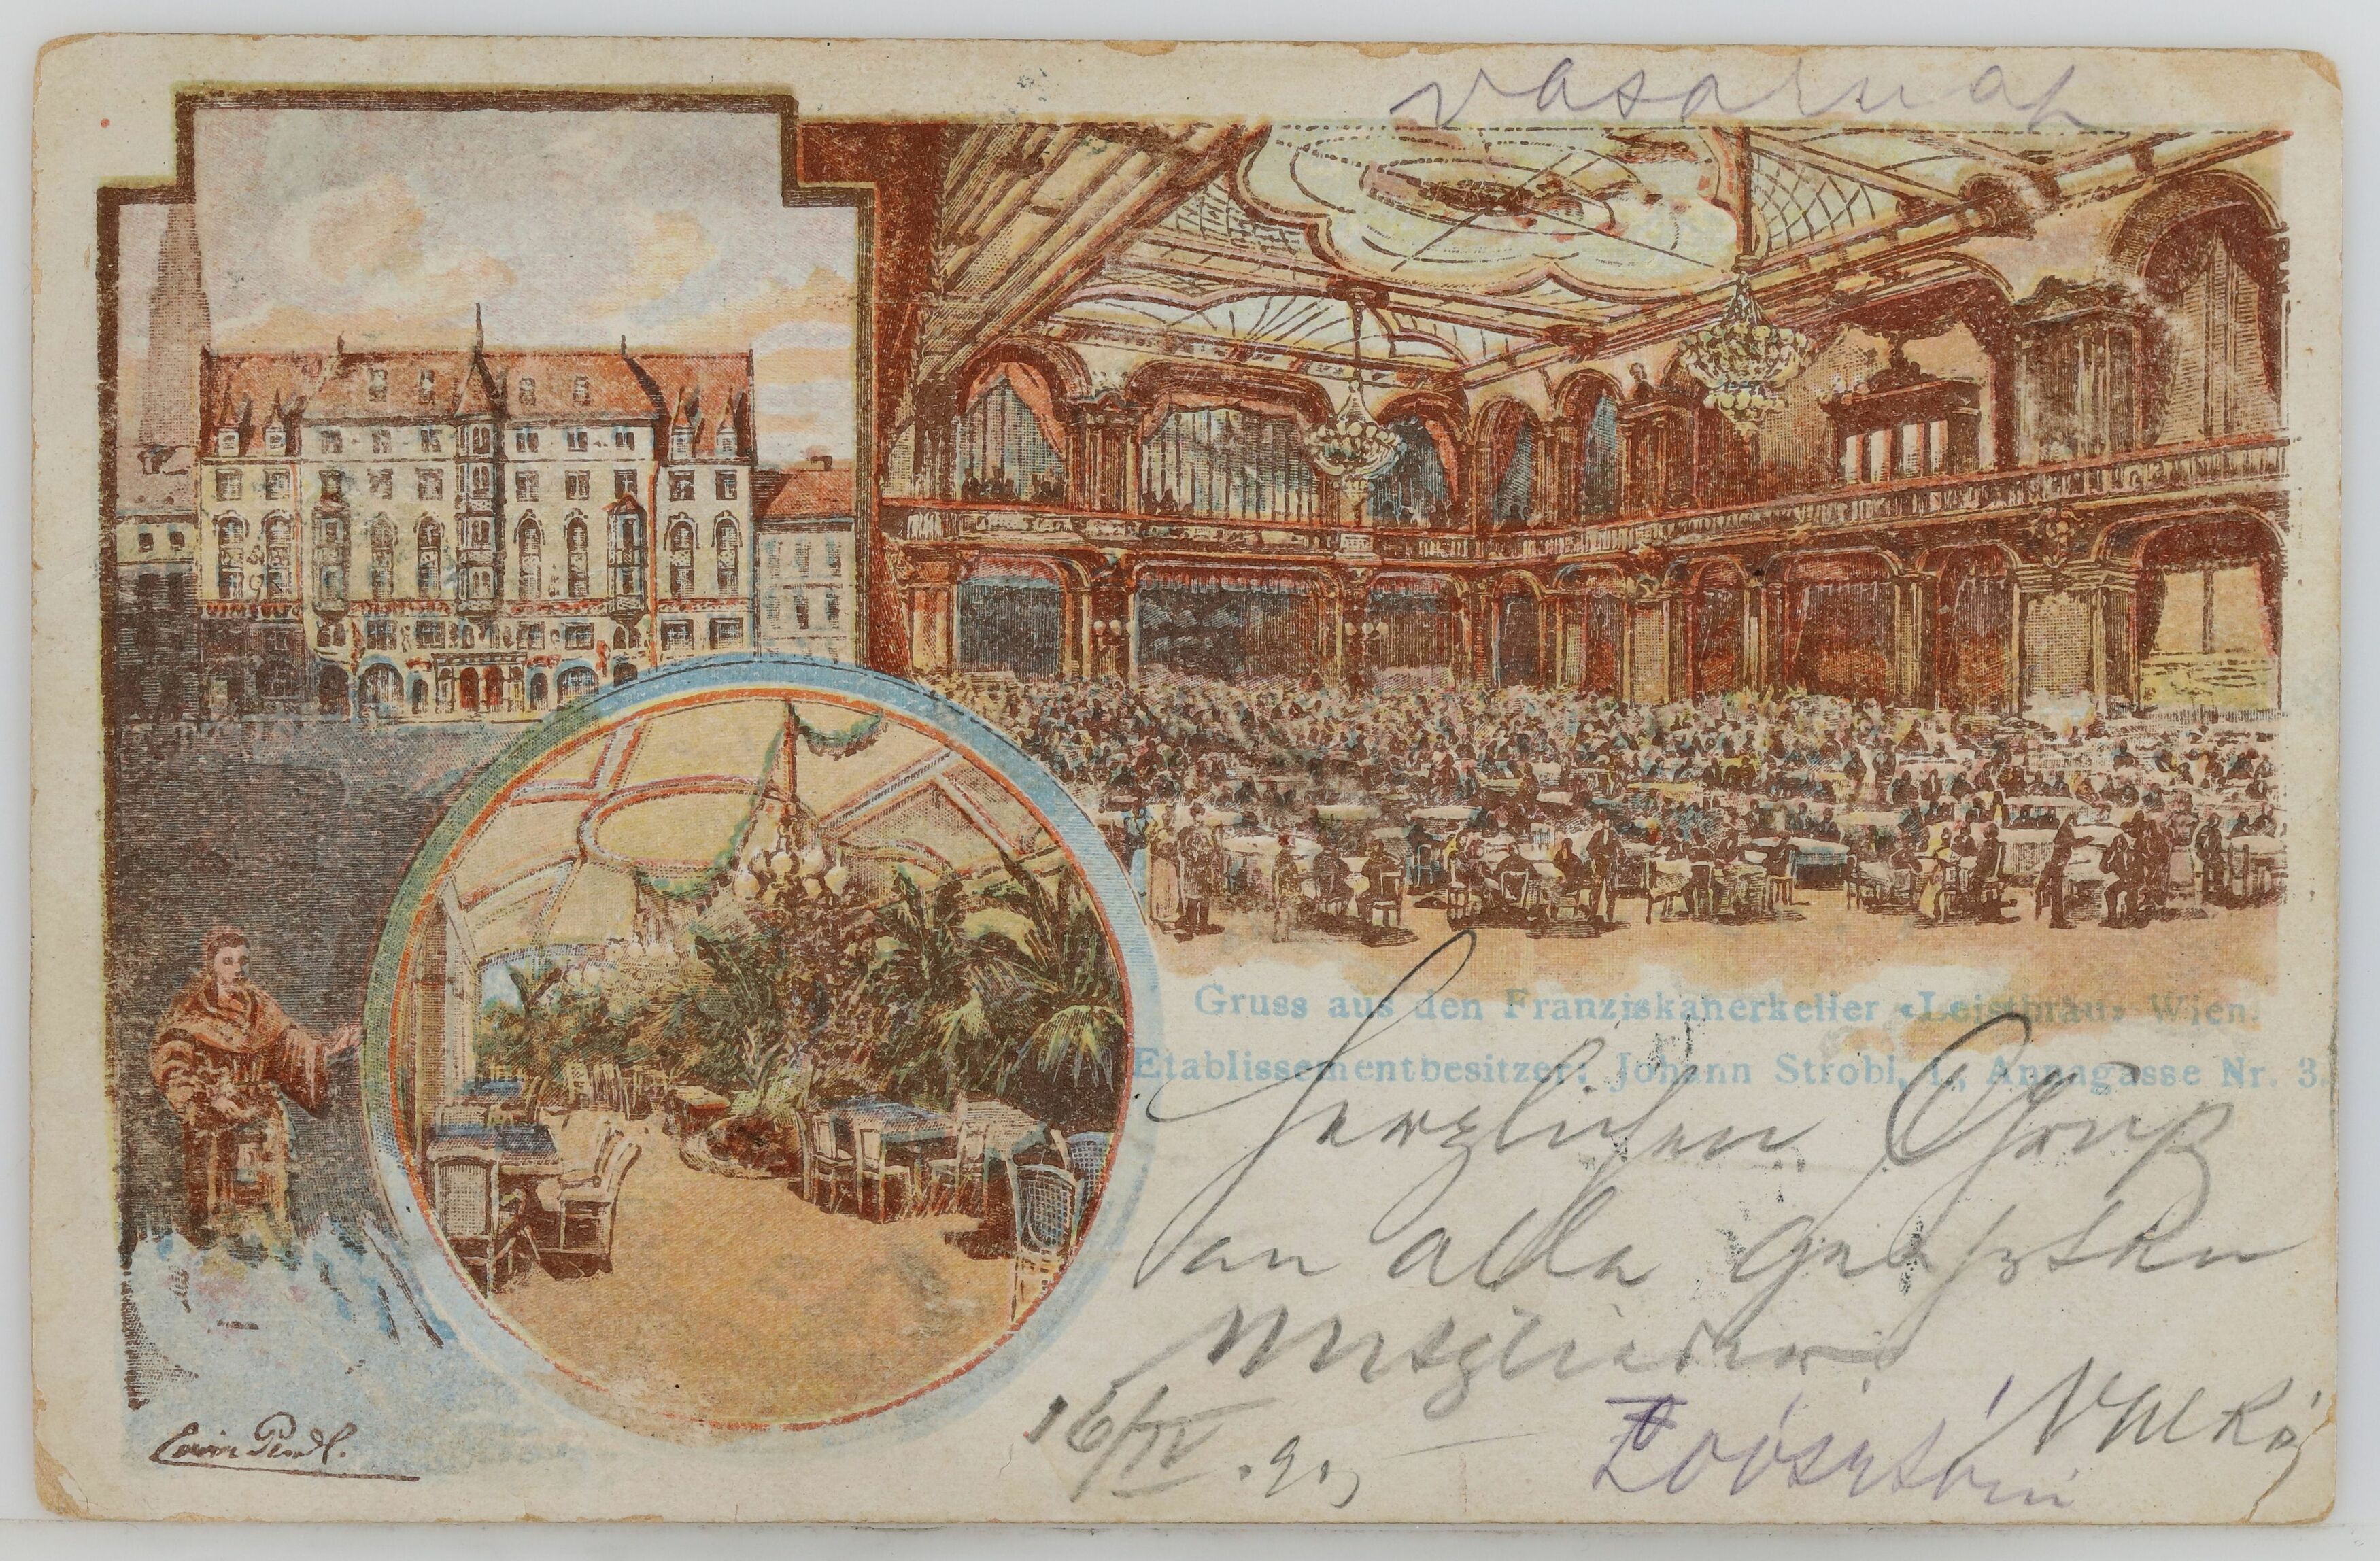 vasarnap
Gruss aus den Franziskanerkeller «Leistbräu» Wien.
Etablissementbesitzer: Johann Strobl, I., Annagasse Nr. 3.
Herzlichen Gruß
an alle
Mitglieder
16/IV
Erwin Pendl.